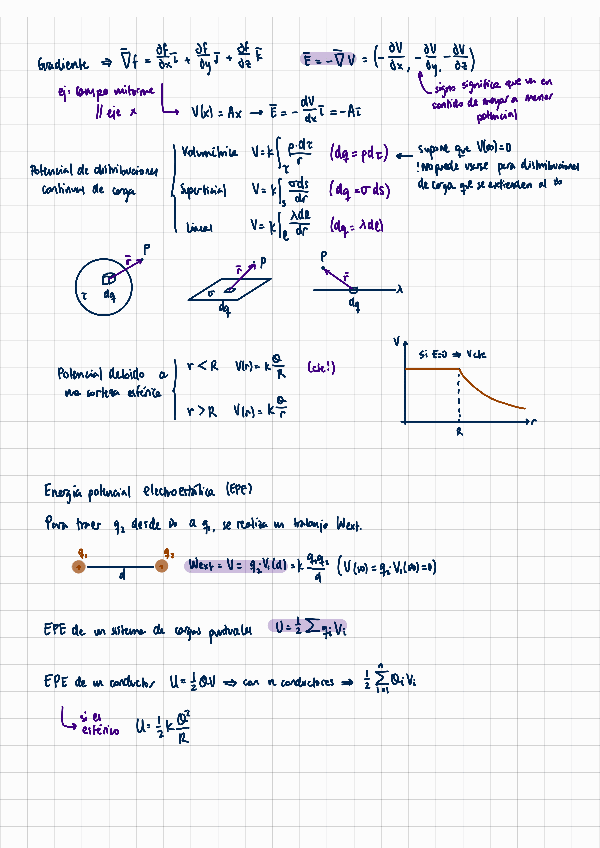 Gradiente ⇒ ∇̄f = ∂f/∂x ī + ∂f/∂y j̄ + ∂f/∂z k̄    Ē = -∇̄V = (-∂V/∂x, -∂V/∂y, -∂V/∂z)
ej: campo uniforme
// eje x
V(x) = Ax → Ē = -dV/dx ī = -Aī
signo significa que va en
sentido de mayor a menor
potencial
Potencial de distribuciones
continuas de carga
Volumétrica V = k∫τ ρ·dτ/r (dq = ρdτ)
Superficial V = k∫s σds/dr (dq = σds)
Lineal V = k∫ℓ λdℓ/dr (dq = λdℓ)
supone que V(∞)=0
!No puede usarse para distribuciones
de carga que se extienden al ∞
r̄ P
τ dq
r̄ P
σ
dq
P r̄
λ
dq
Potencial debido a
una corteza esférica
r < R V(r) = k Q/R (cte!)
r > R V(r) = k Q/r
V
Si E=0 ⇒ V cte
r
R
Energía potencial electroestática (EPE)
Para traer q₂ desde ∞ a q₁, se realiza un trabajo Wext.
q₁ q₂
+ +
d
Wext = U = q₂·V₁(d) = k q₁q₂/d (U(∞) = q₂·V₁(∞) = 0)
EPE de un sistema de cargas puntuales U = 1/2 Σ qᵢVᵢ
EPE de un conductor U = 1/2 QV ⇒ con n conductores ⇒ 1/2 Σⁿᵢ₌₁ QᵢVᵢ
si es
esférico
U = 1/2 k Q²/R